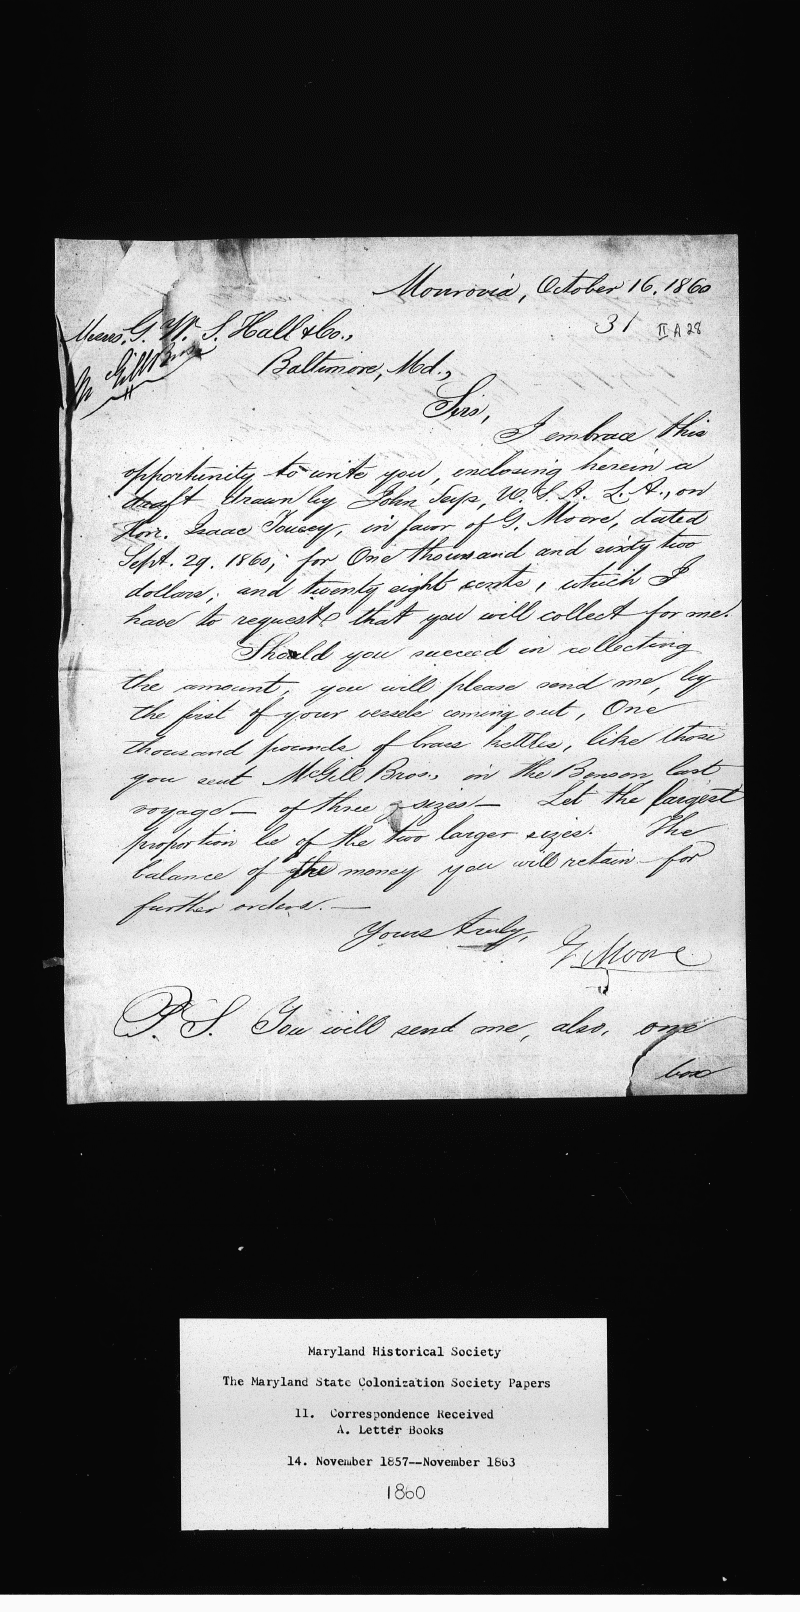 Monrovia, October 16, 1860
31 II A 28
Messrs. G. W. S. Hall & Co.,
McGill Bros
Baltimore, Md.,
Sirs,
I embrace this
opportunity to write you, enclosing herein a
draft drawn by John Seys, U. S. A. L. A., on
Hon. Isaac Toucey, in favor of G. Moore, dated
Sept. 29. 1860; for One thousand and sixty two
dollars, and twenty eight cents, which I
have to request that you will collect for me.
Should you succeed in collecting
the amount, you will please send me, by
the first of your vessels coming out, One
thousand pounds of brass kettles, like those
you sent McGill Bros., in the Benson last
voyage — of three sizes — Let the largest
proportion be of the two larger sizes. The
balance of the money you will retain for
further orders. —
Yours truly,
G. Moore
P. S. You will send me, also, one
box
Maryland Historical Society
The Maryland State Colonization Society Papers
11. Correspondence Received
A. Letter Books
14. November 1857--November 1863
1860